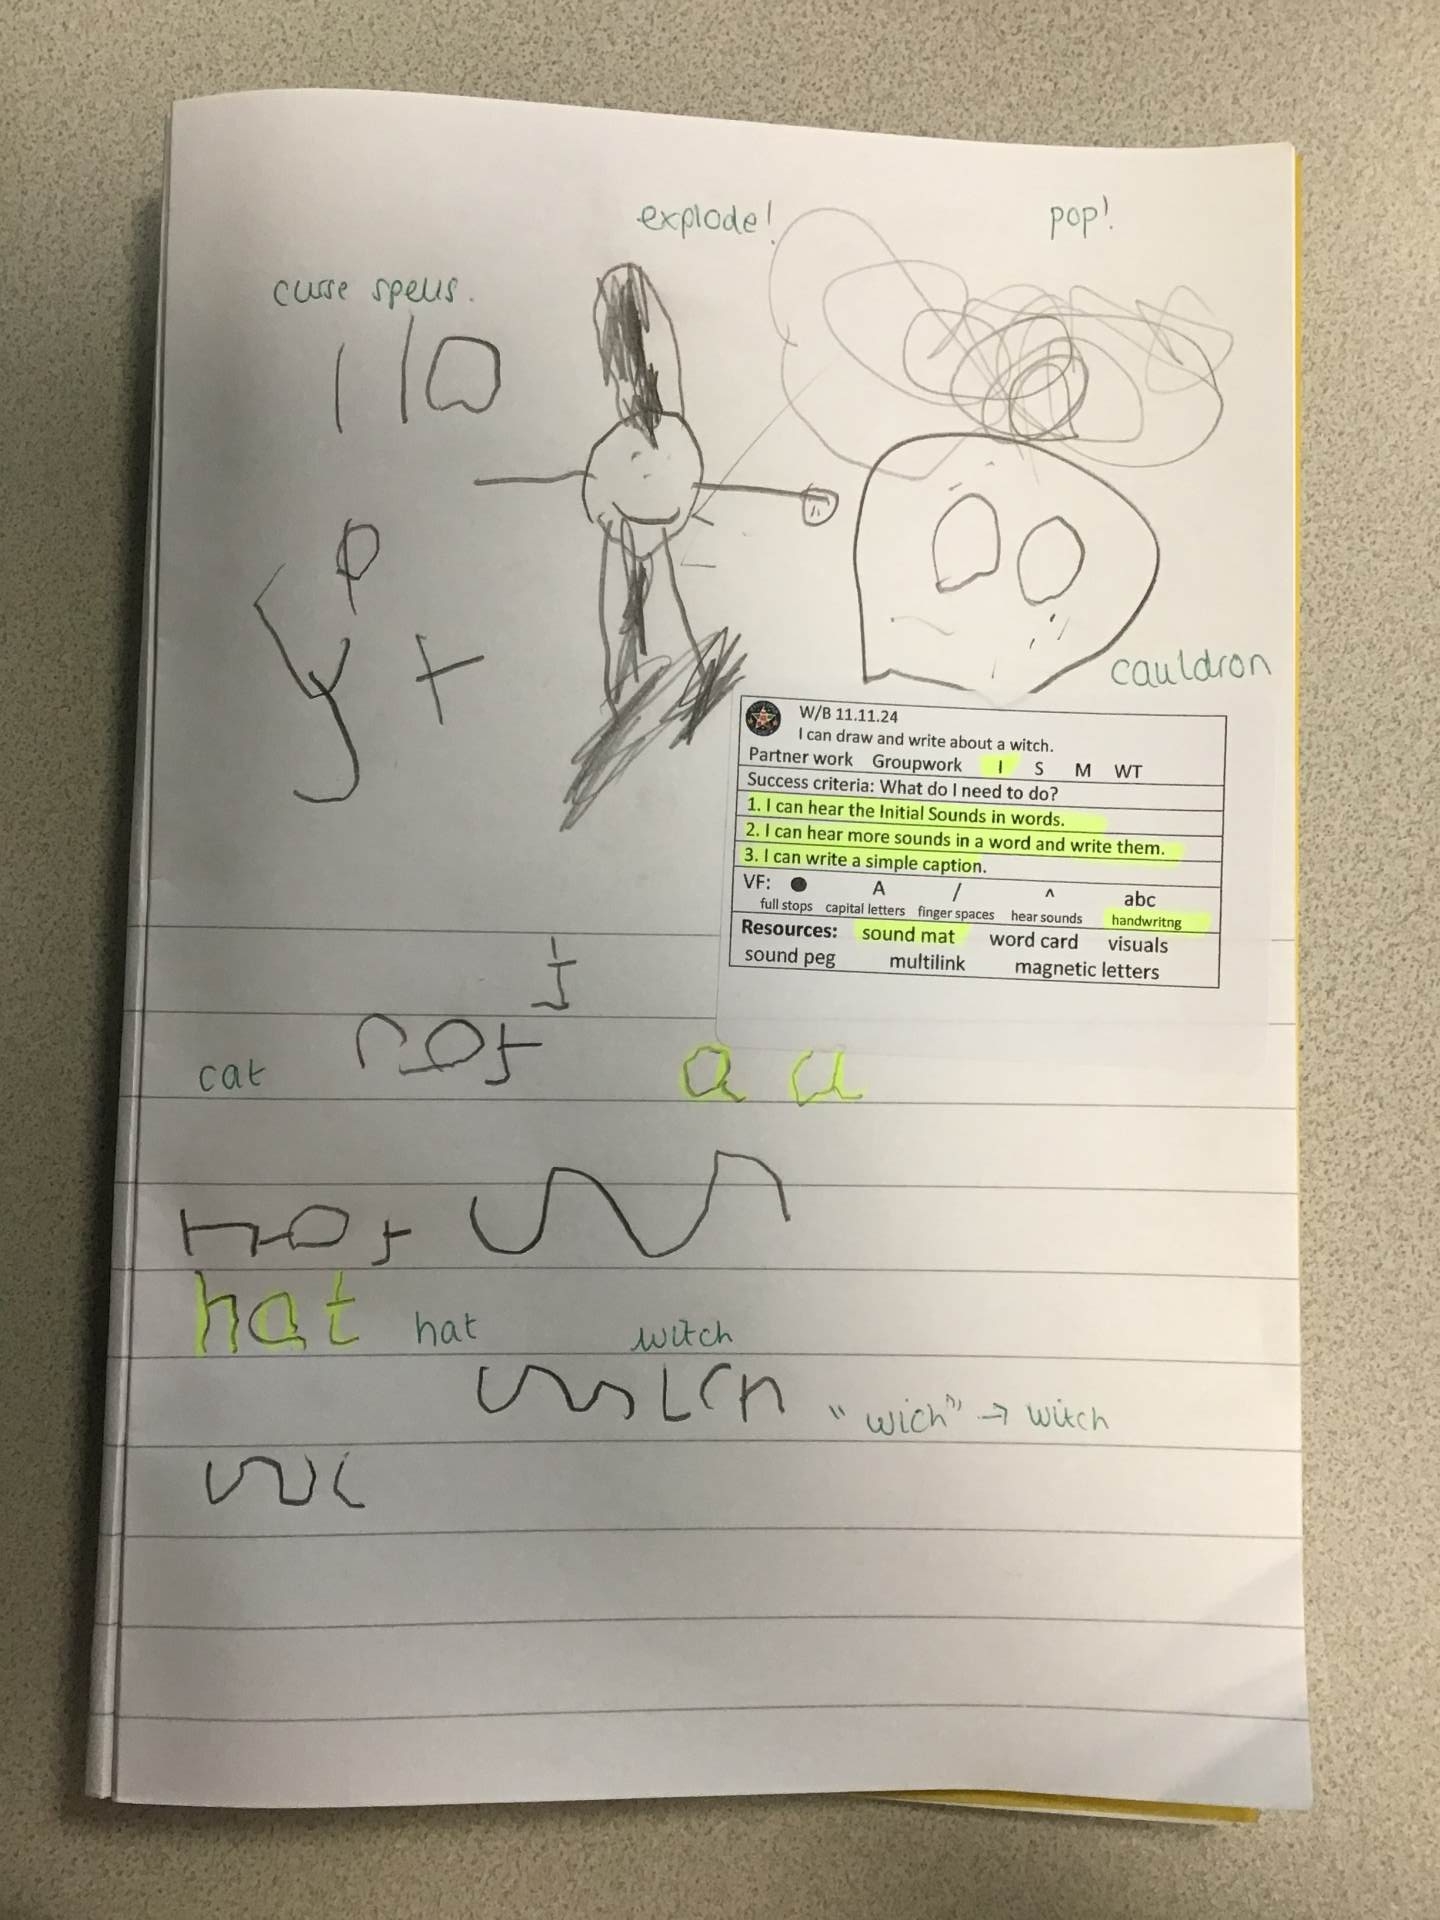 explode!
pop!
curse spells.
cauldron
W/B 11.11.24
I can draw and write about a witch.
Partner work Groupwork I S M WT
Success criteria: What do I need to do?
1. I can hear the Initial Sounds in words.
2. I can hear more sounds in a word and write them.
3. I can write a simple caption.
VF: ● A / ^ abc
full stops capital letters finger spaces hear sounds handwritng
Resources: sound mat word card visuals
sound peg multilink magnetic letters
cat a a
hat hat witch
"wich" → witch